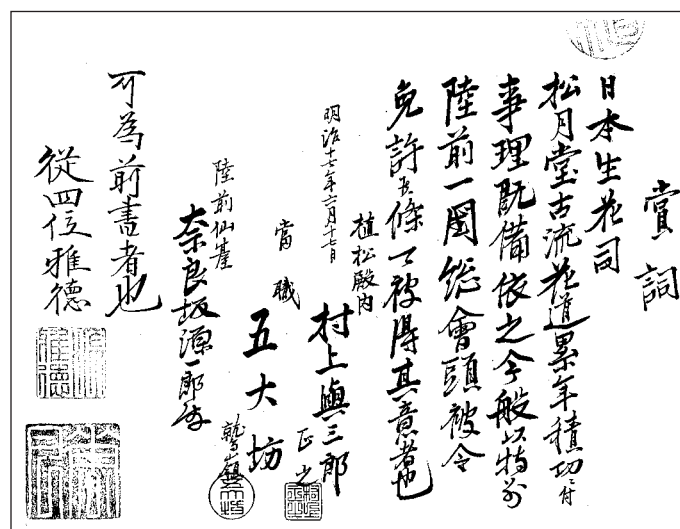 賞詞
日本生花司
松月堂古流花道累年積功ニ付
事理既備依之今般以特別
陸前一圀総會頭被令
免許畢條可被得其意者也
明治十七年六月十七日
植松殿内
村上與三郎
正之
當職
五大坊
鷲嶺
陸前仙臺
奈良坂源一郎
可為前書者也
従四位雅徳